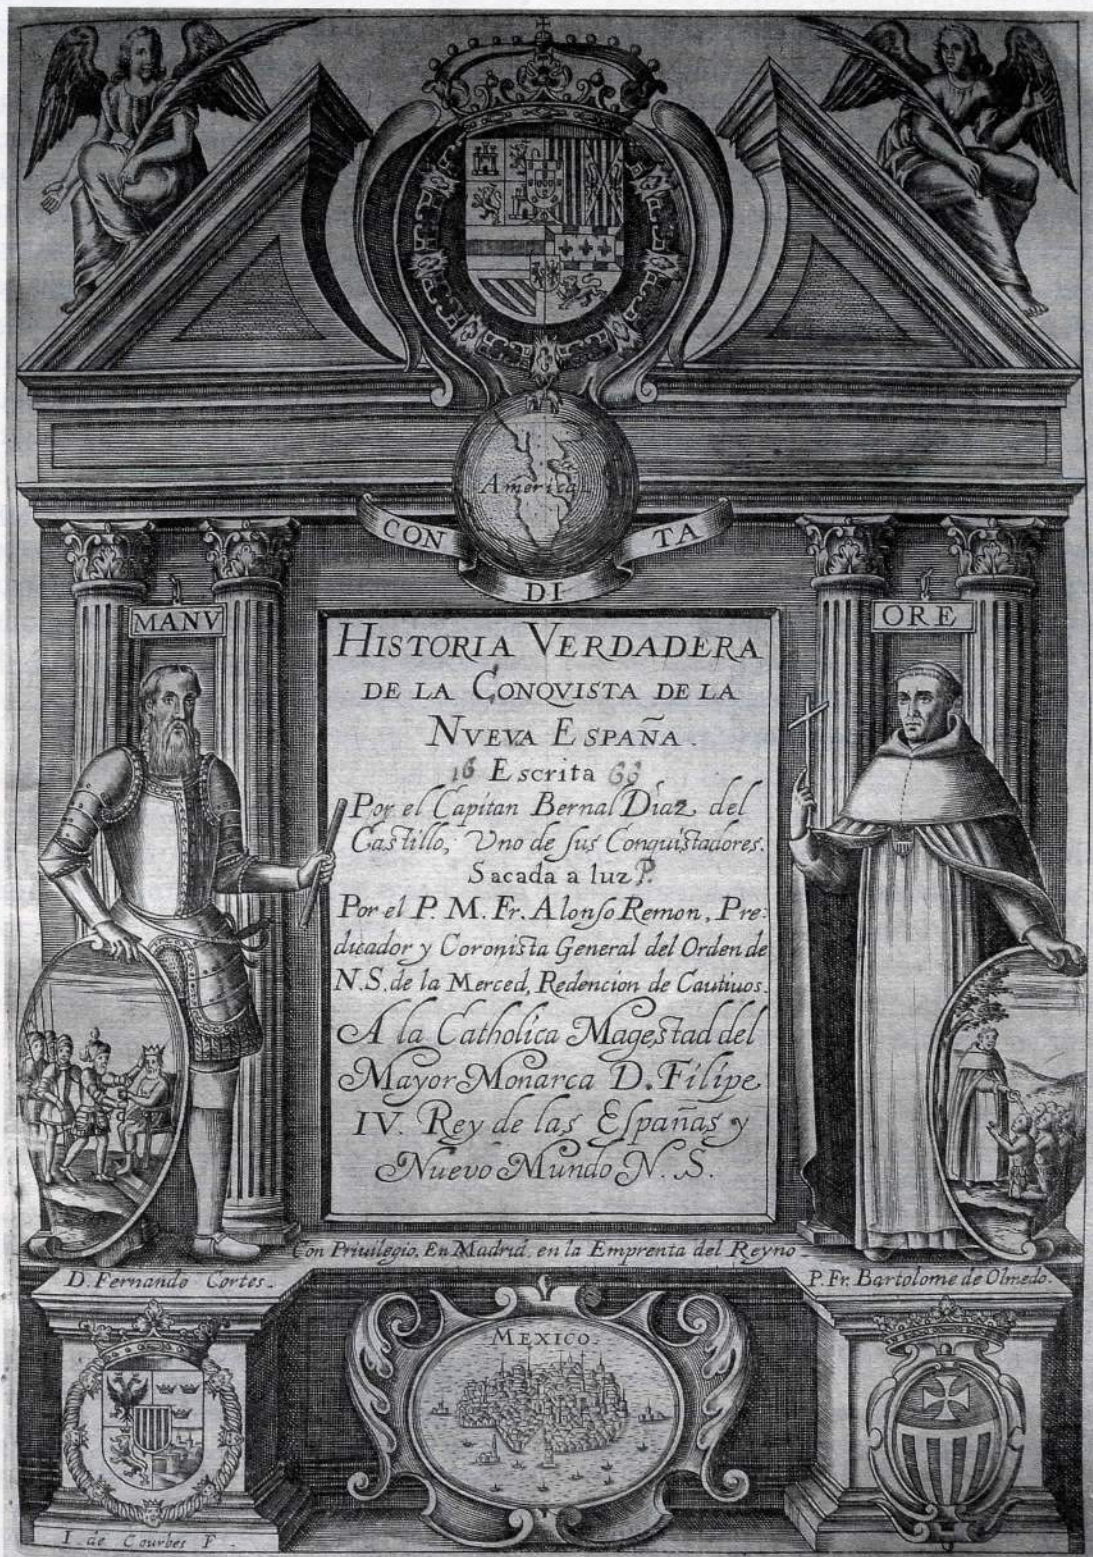 America.
CON
DI
TA
MANV
ORE
HISTORIA VERDADERA
DE LA CONQVISTA DE LA
NVEVA ESPAÑA.
16 Escrita 66
Por el Capitan Bernal Diaz del
Castillo, Vno de sus Conquistadores.
Sacada a luz P.
Por el P. M. Fr. Alonso Remon, Pre-
dicador y Coronista General del Orden de
N.S. de la Merced, Redencion de Cautiuos.
A la Catholica Magestad del
Mayor Monarca D. Filipe
IV. Rey de las Españas y
Nuevo Mundo N. S.
Con Privilegio. En Madrid, en la Emprenta del Reyno
D. Fernando Cortes.
P. Fr. Bartolome de Olmedo.
MEXICO.
I. de Courbes F.